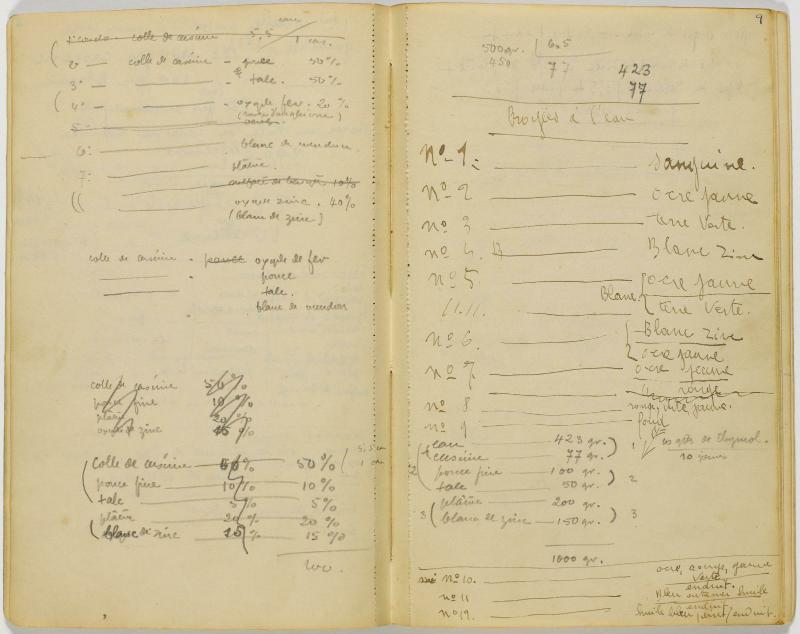 eau
colle de caséine 5,5 1 cas.
2° — colle de caséine - ponce 50%
3° — — - talc. 50%
4° — — - oxyde fer. 20%
5°
6: — blanc de meudon
7: — plâtre.
10%
oxyde zinc. 40%
(blanc de zinc)
colle de caséine - ponce oxyde de fer
ponce
talc.
blanc de meudon
colle de caséine 50%
ponce fine 10%
plâtre 20%
oxyde zinc 15%
colle de caséine 50% 50%
ponce fine 10% 10%
talc 5% 5%
plâtre 20% 20%
blanc de zinc 15% 15%
100.
9
500 gr. 6.5
450 77 423
77
Broyés à l'eau
N° 1: — Sanguine.
N° 2 — ocre jaune
N° 3 — terre verte.
N° 4. — Blanc Zinc
N° 5 — ocre jaune
Blanc. terre verte.
N° 6. — Blanc Zinc
ocre jaune
N° 7. — ocre jaune
rouge
N° 8 — rouge, verte, jaune.
N° 9 — fond
eau — 423 gr.
caséine — 77 gr. 1
10 jours
2 ponce fine — 100 gr. 2
talc — 50 gr.
plâtre — 200 gr.
3 blanc de zinc — 150 gr. 3
1000 gr.
N° 10. — ocre, rouge, jaune
verte
enduit.
N° 11 — Bleu outremer huile
enduit
N° 12. — huile bleu,